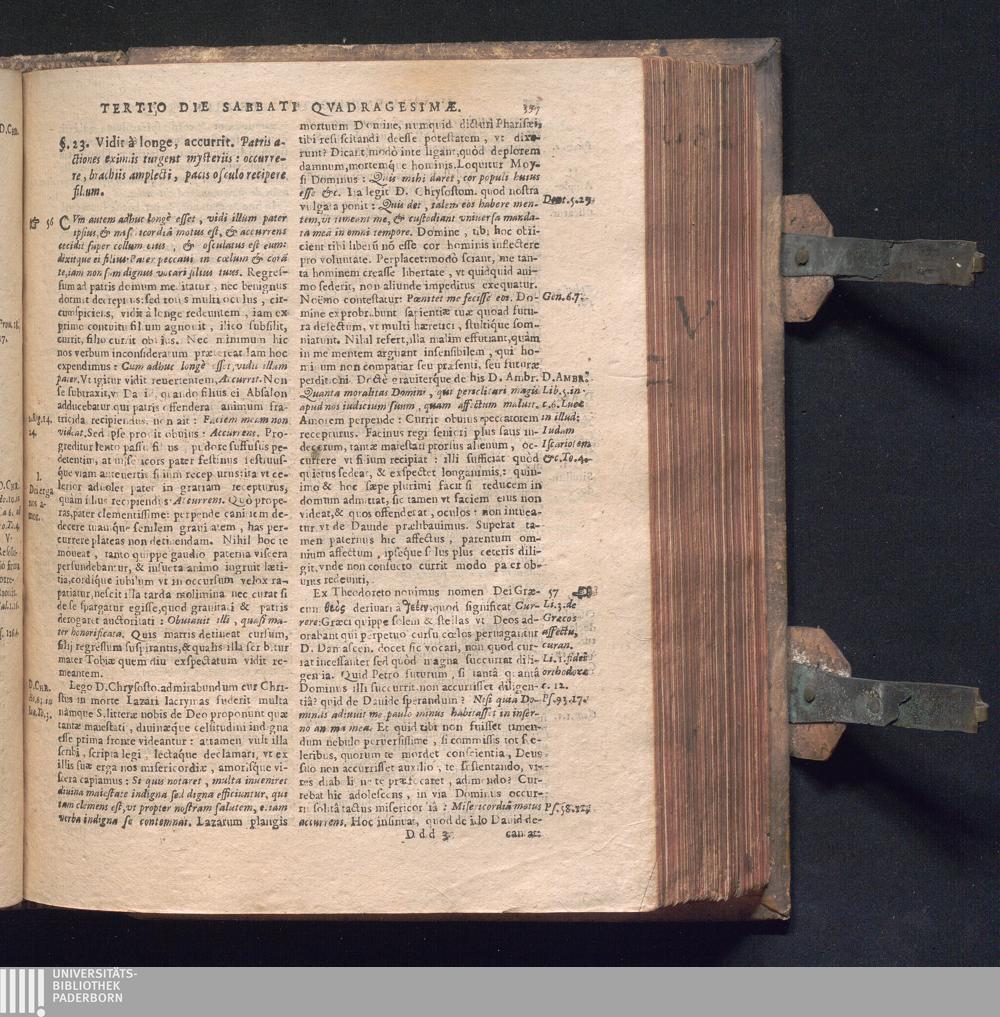 TERTIO DIE SABBATI QVADRAGESIMÆ.
397
§. 23. Vidit à longe, accurrit. Patris a-
ctiones eximiis turgent mysteriis: occurre-
re, brachiis amplecti, pacis osculo recipere
filium.
56 CVm autem adhuc longè esset, vidi illum pater
ipsius, & misericordiâ motus est, & accurrens
cecidit super collum eius, & osculatus est eum:
dixitque ei filius: Pater peccaui in cœlum & corā
te, iam non sum dignus vocari filius tuus. Regres-
sum ad patris domum meditatur, nec benignus
dormit decrepitus: sed totus multi oculus, cir-
cumspiciens, vidit à longe redeuntem, iam ex
primo contuitu filium agnouit, ilico subsilit,
currit, filio currit obuius. Nec minimum hic
nos verbum inconsideratum prætereat. Iam hoc
expendimus: Cum adhuc longè esset, vidit illum
pater. Vt igitur vidit reuertentem, Accurrit. Non
se subtraxit, vt Dauid, quando filius ei Absalon
adducebatur qui patris offenderat animum fra-
tricida recipiendus, non ait: Faciem meam non
videat. Sed ipse prodit obuius: Accurrens. Pro-
greditur lento passu filius, pudore suffusus pe-
detentim, at misericors pater festinus
que viam anteuertit filium recepturus ita vt ce-
lerior adsolet pater in gratiam recepturus,
quàm filius recipiendus. Accurrens. Quò prope-
ras, pater clementissime: perpende canitiem de-
decere tuamque senilem grauitatem, has per-
currere plateas non detinendam. Nihil hoc te
moueat, tanto quippe gaudio paterna viscera
persundebantur, & insueta animo ingruit læti-
tia, cordique iubilum vt in occursum velox ra-
patiatur, nescit illa tarda molimina nec curat si
de se spargatur egisse, quod grauitati & patris
derogaret auctoritati: Obuiauit illi, quasi ma-
ter honorificata. Quis matris detineat cursum,
filij regressum suspirantis, & qualis illa scribitur
mater Tobiæ quem diu exspectatum vidit re-
meantem.
Lego D. Chrysosto. admirabundum cur Chri-
stus in morte Lazari lacrymas fuderit multa
námque S. litteræ nobis de Deo proponunt quæ
tantæ maiestati, diuinæque celsitudini indigna
esse prima fronte videantur: attamen vult illa
scribi, scripta legi, lectaque declamari, vt ex
illis suæ erga nos misericordiæ, amorisque vi-
scera capiamus: Si quis notaret, multa inueniret
diuina maiestate indigna sed digna efficiuntur, qui
tam clemens est, vt propter nostram salutem, etiam
verba indigna se contemnat. Lazarum plangis
Prou. 18.
17.
2. Reg. 14.
14.
I.
Dei erga
nos a-
mor.
D. CHR.
mortuum Domine, numquid dicturi Pharisæi,
tibi resuscitandi deesse potestatem, vt dixe-
runt? Dicant, modò in te ligant, quòd deplorem
damnum, mortemque hominis. Loquitur Moy-
si Dominus: Quis mihi daret, cor populi huius
esse &c. Ita legit D. Chrysostom. quod nostra
vulgata ponit: Quis det, talem eos habere men-
tem, vt timeant me, & custodiant vniuersa manda-
ta mea in omni tempore. Domine, tibi hoc obii-
cient tibi liberū nō esse cor hominis inflectere
pro voluntate. Perplacet: modò sciant, me tan-
ta hominem creasse libertate, vt quidquid ani-
mo sederit, non aliunde impeditus exequatur.
Noëmo contestatur: Pœnitet me fecisse eos. Do-
mine exprobrabunt sapientiæ tuæ quoad futu-
ra defectum, vt multi hæretici, stultique som-
niatunt. Nihil refert, illa malim effutiant, quàm
in me mentem arguant insensibilem, qui ho-
minum non compatiar seu præsenti, seu futuræ
perditioni. Doctè grauiterque de his D. Ambr.
Quanta moralitas Domini, qui periclitari magis
apud nos iudicium suum, quam affectum maluit.
Amorem perpende: Currit obuius peccatorem
recepturus. Facinus regi seniori plus satis in-
decorum, tantæ maiestati prorsus alienum, oc-
currere vt filium recipiat: illi sufficiat quòd
quietus sedeat, & exspectet longanimis: quin-
imo & hoc sæpe plurimi facit si reducem in
domum admittat, sic tamen vt faciem eius non
videat, & quos offenderat, oculos: non intuea-
tur vt de Dauide prælibauimus. Superat ta-
men paternus hic affectus, parentum om-
nium affectum, ipseque filius plus ceteris dili-
git, vnde non consueto currit modo pater ob-
uius redeunti.
Ex Theodoreto nouimus nomen Dei Græ-
cum θεὸς deriuari à θεῖν, quod significat Cur-
rere: Græci quippe solem & stellas vt Deos ad-
orabant qui perpetuo cursu cœlos peruagantur
D. Damascen. docet sic vocari, non quod cur-
rat incessanter sed quòd magna succurrat dili-
gentia. Quid Petro futurum, si tantâ quantâ
Dominus illi succurrit non accurrisset diligen-
tiâ? quid de Dauide sperandum? Nisi quia Do-
minus adiuuit me paulo minus habitasset in infer-
no anima mea. Et quid tibi non fuisset timen-
dum nebulo peruersissime, si commissis tot sce-
leribus, quorum te mordet conscientia, Deus
suo non accurrisset auxilio, te sustentando, vi-
res diaboli ne te præfocaret, adimendo? Cur-
rebat hic adolescens, in via Dominus occur-
rit solitâ tactus misericordiâ: Misericordiâ motus
accurrens. Hoc insinuat, quod de illo Dauid de-
Ddd 3
cantat:
Deut. 5. 29.
Gen. 6. 7.
D. AMBR.
Lib. 5. in
c. 6. Lucæ
in illud:
Iudam
Iscariotem
&c. To. 4.
57
Li. 3. de
Græcos
affectu,
curan.
Li. 1. fidei
orthodoxæ
c. 12.
Ps. 93. 17.
Ps. 58.
UNIVERSITÄTS-
BIBLIOTHEK
PADERBORN